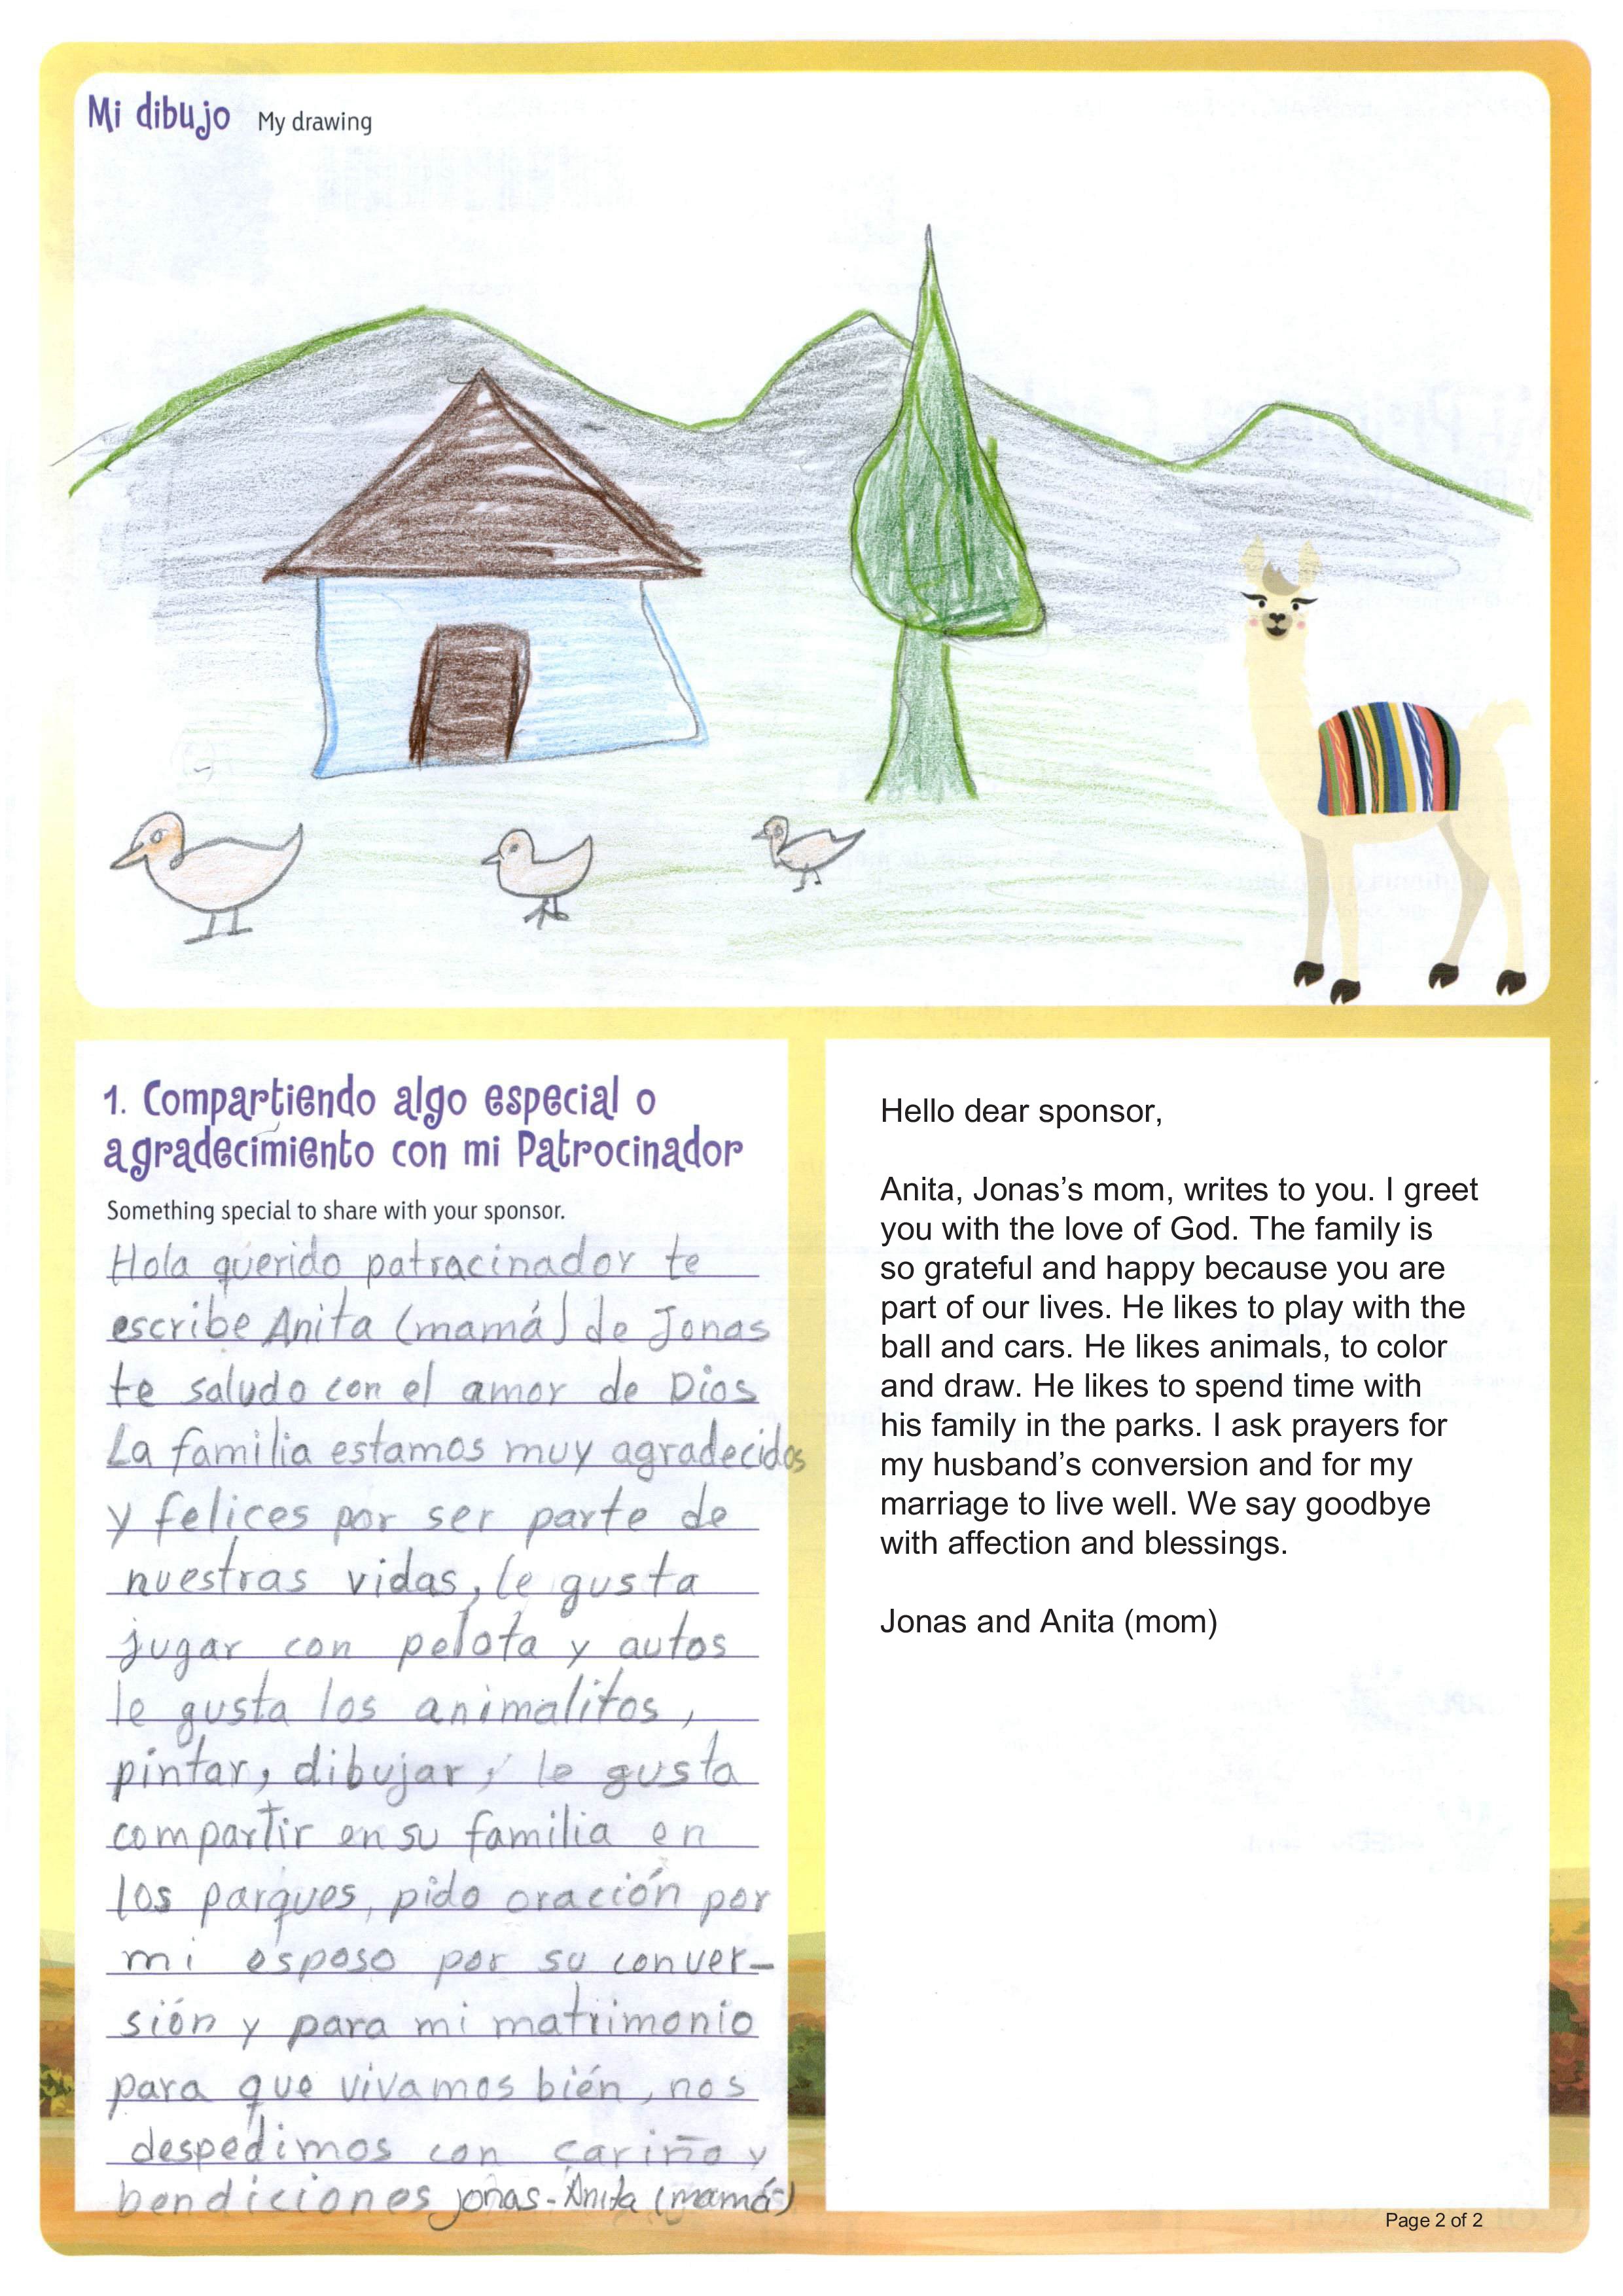 Mi dibujo My drawing
1. Compartiendo algo especial o
agradecimiento con mi Patrocinador
Something special to share with your sponsor.
Hola querido patracinador te
escribe Anita (mamá) de Jonas
te saludo con el amor de Dios
La familia estamos muy agradecidos
y felices por ser parte de
nuestras vidas, le gusta
jugar con pelota y autos
le gusta los animalitos,
pintar, dibujar, le gusta
compartir en su familia en
los parques, pido oración por
mi esposo por su conver-
sión y para mi matrimonio
para que vivamos bién, nos
despedimos con cariño y
bendiciones jonas-Anita (mamá)
Hello dear sponsor,
Anita, Jonas’s mom, writes to you. I greet
you with the love of God. The family is
so grateful and happy because you are
part of our lives. He likes to play with the
ball and cars. He likes animals, to color
and draw. He likes to spend time with
his family in the parks. I ask prayers for
my husband’s conversion and for my
marriage to live well. We say goodbye
with affection and blessings.
Jonas and Anita (mom)
Page 2 of 2